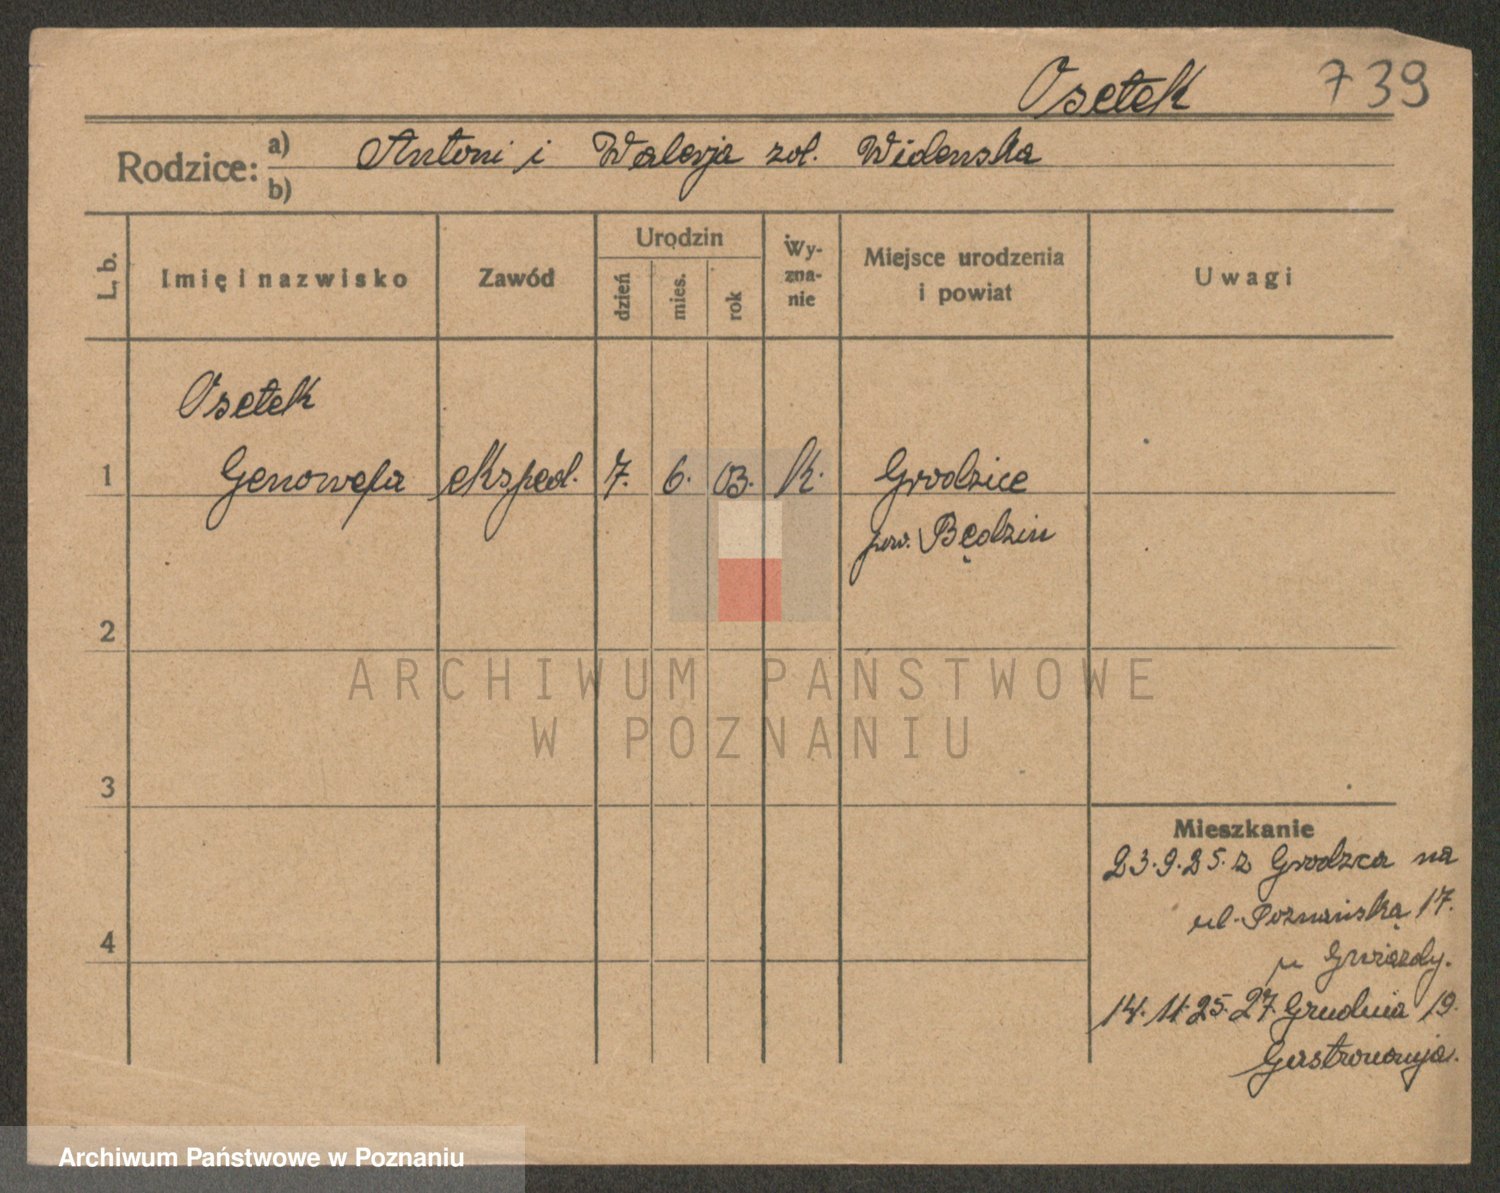 Osetek 739
Rodzice: a) Antoni i Walerja zol. Widenska
b)
L. b. Imię i nazwisko Zawód Urodzin dzień mies. rok Wy-zna-nie Miejsce urodzenia i powiat Uwagi
Osetek
1 Genowefa ekspod. 7. 6. 03. k. Grodzice
pow. Będzin
2
3
Mieszkanie
23.9.25. z Grodzca na
ul. Poznańską 17.
u Gwiazdy.
4
14.11.25. 27 Grudnia 19.
Gastronomja.
ARCHIWUM PAŃSTWOWE
W POZNANIU
Archiwum Państwowe w Poznaniu